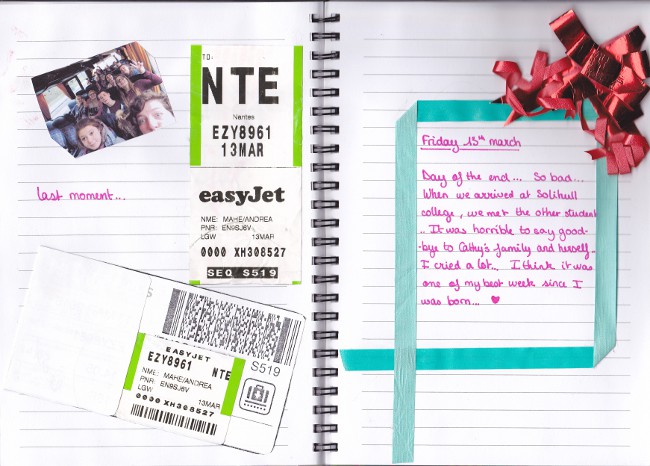 TO:
NTE
Nantes
EZY8961
13MAR
easyJet
NME: MAHE/ANDREA
PNR: EN9SJ6V
LGW 13MAR
0000 XH308527
SEQ S519
last moment...
S
S519
EASYJET
EZY8961 NTE
NME: MAHE/ANDREA
PNR: EN9SJ6V
LGW 13MAR
0000 XH308527
Friday 13th march
Day of the end... So bad...
When we arrived at Solihull
college, we met the other student
.. It was horrible to say good-
-bye to Cathy's family and herself
I cried a lot... I think it was
one of my best week since I
was born... ♥